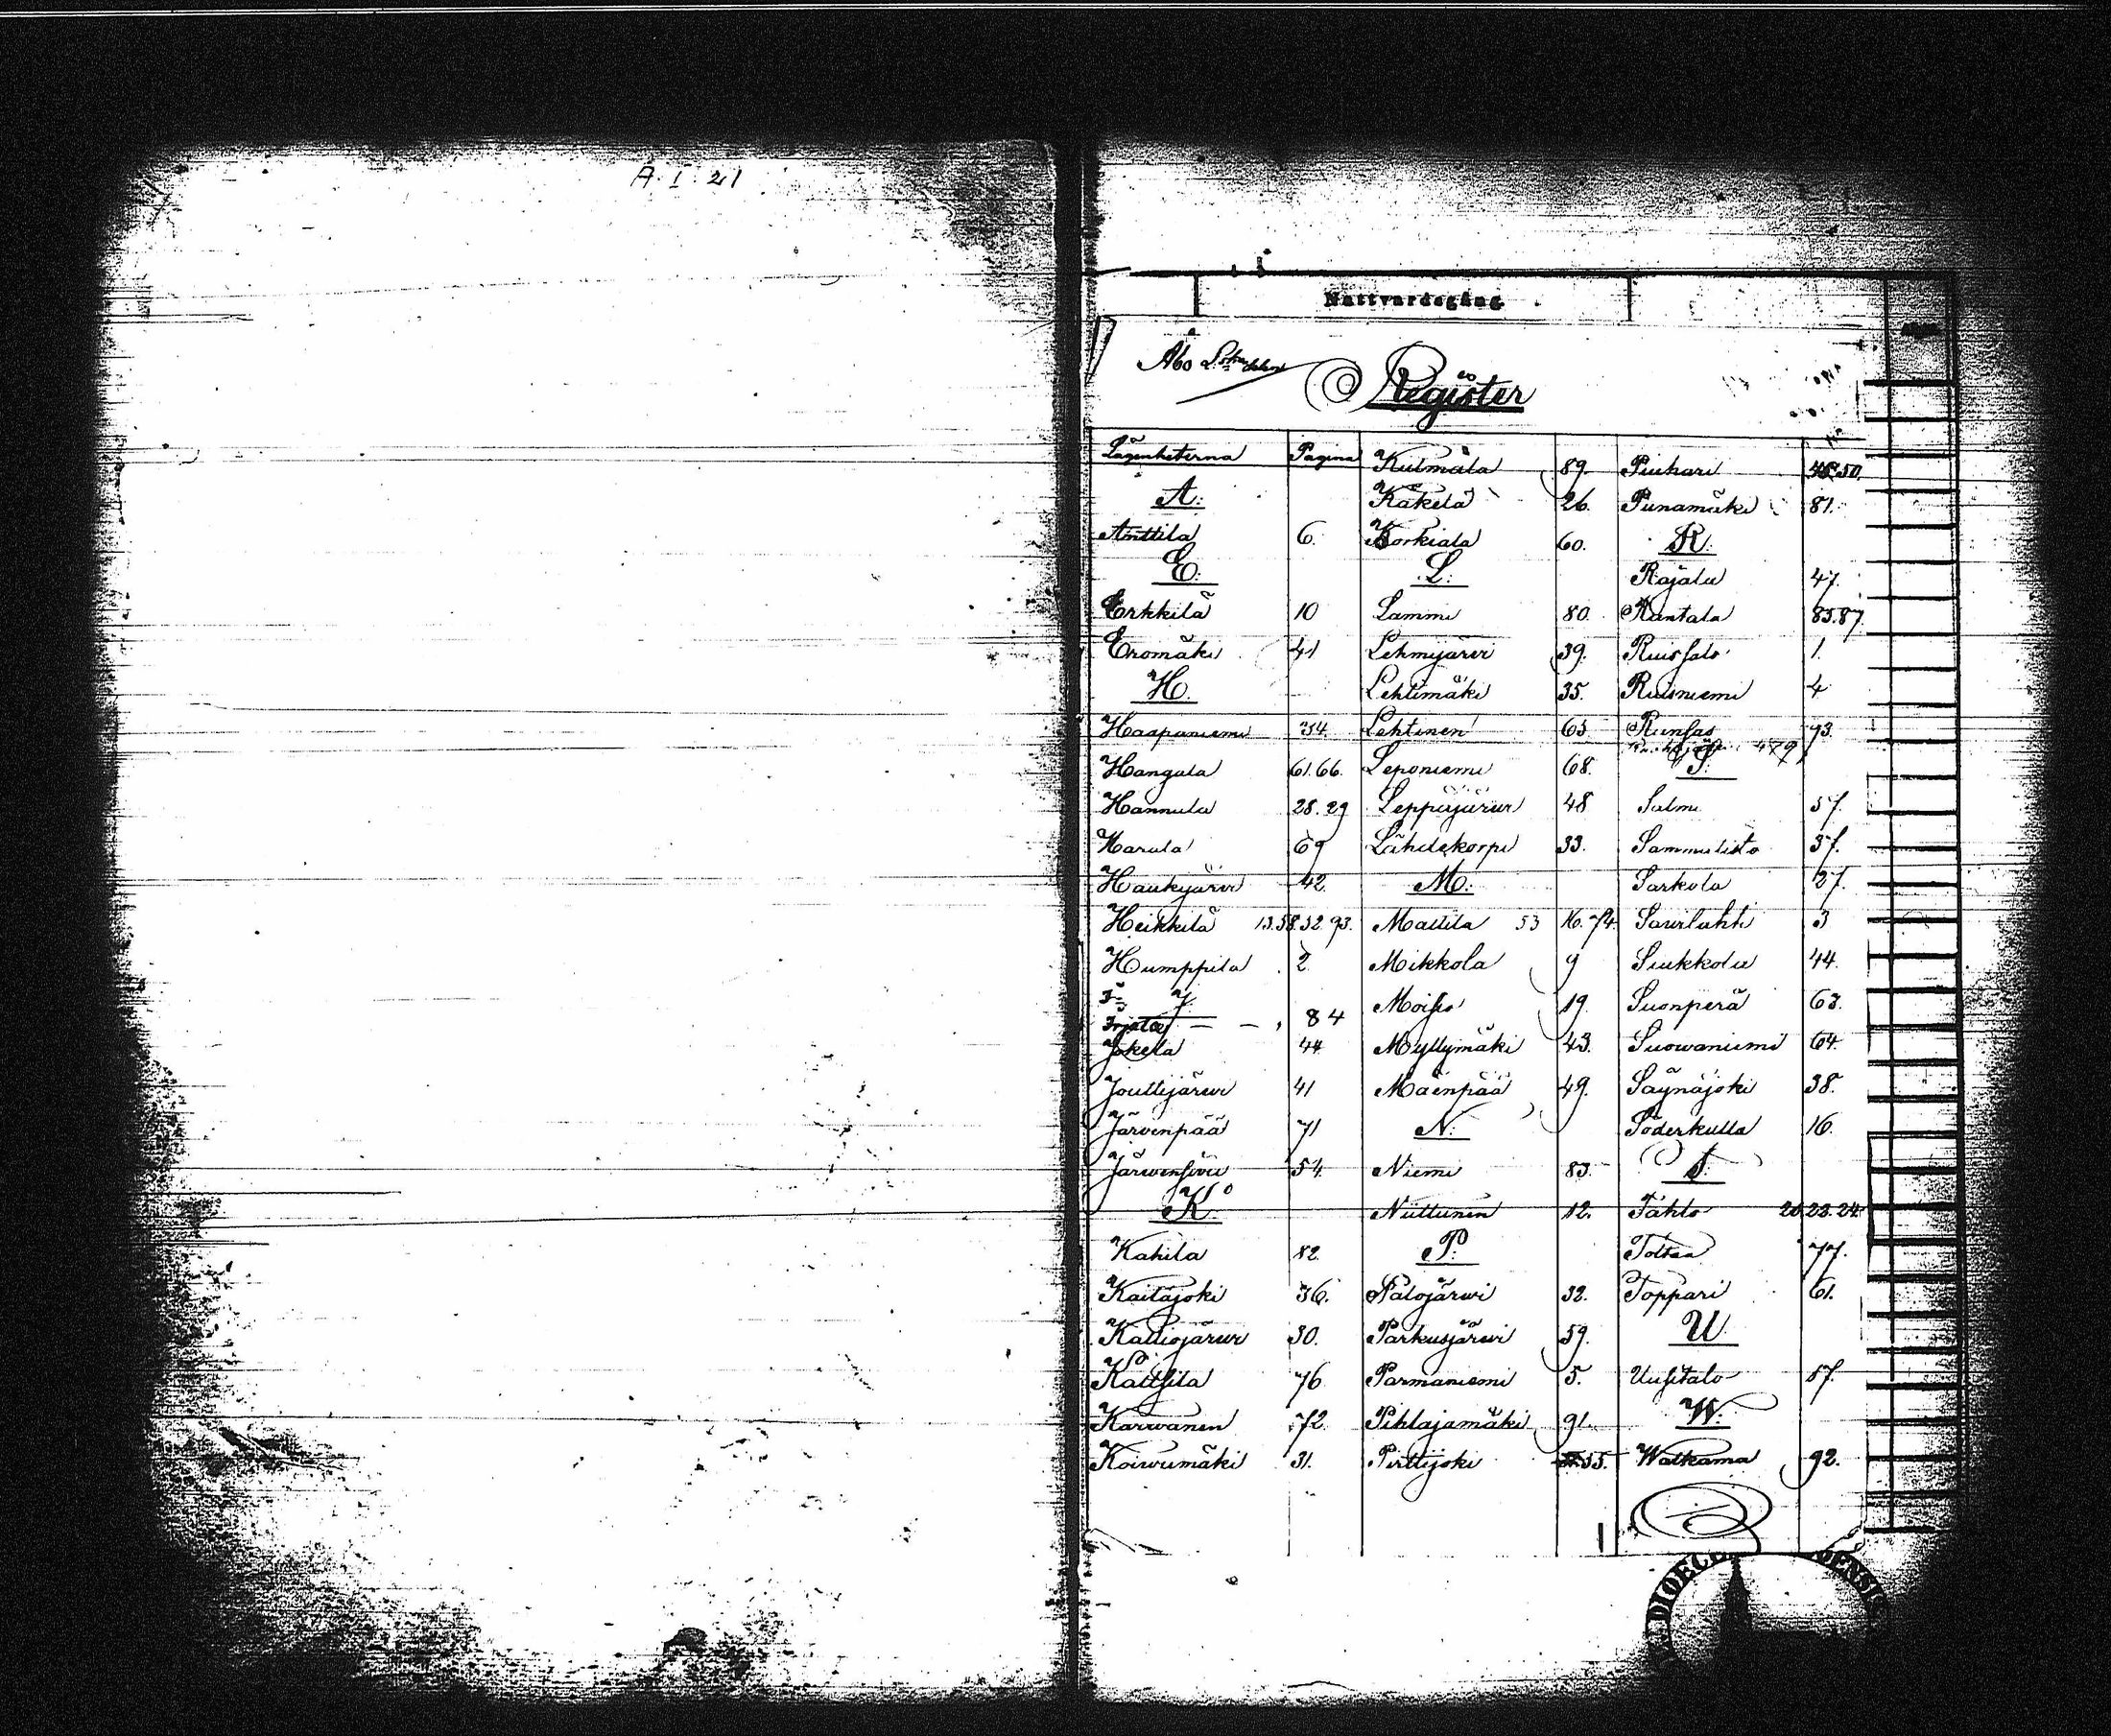 A. I. 21
Nattvardsgång
Åbo
Register
Lägenheterna Pagina
A:
Anttila 6.
E:
Erkkilä 10
Eromäki 41
H.
Haapaniemi 34
Hangula 61.66.
Hannula 28.29
Harala 69
Haukijärvi 42.
Heikkilä 13.58.52.93.
Humppila 2
I. J.
Irjala 84
Jokela 44
Jouttijärvi 41
Järvenpää 71
Järvensivu 54.
K.
Kahila 82.
Kaitajoki 36.
Kalliojärvi 30.
Kattsila 76
Karvanen 72.
Koivumäki 31.
Kulmala 89.
Käkelä 26.
Korkiala 60.
L:
Lammi 80.
Lehmijärvi 39.
Lehtimäki 35.
Lehtinen 65
Leponiemi 68.
Leppäjärvi 48
Lähdekorpi 33.
M:
Mattila 53 16.74.
Mikkola 9
Moisio 19.
Myllymäki 43.
Mäenpää 49.
N:
Niemi 83.
Niittunen 12.
P:
Palojärwi 32.
Parkusjärwi 59.
Parmaniemi 5.
Pihlajamäki 91.
Pirttijoki 55.
Piuhari 50.
Punamäki 81.
R:
Rajala 47.
Rantala 85.87.
Ruissalo 1.
Ruisniemi 4
Runsas 93.
S:
Salmi 57.
Sammalisto 37.
Sarkola 27.
Savilahti 3
Siukkola 44.
Suonperä 63.
Suowaniemi 64.
Säynäjoki 38.
Söderkulla 16.
T:
Tähtö 20.23.24.
Toltaa 77.
Toppari 61.
U.
Uusitalo 57.
W:
Watkama 92.
DIOECE
OENSI